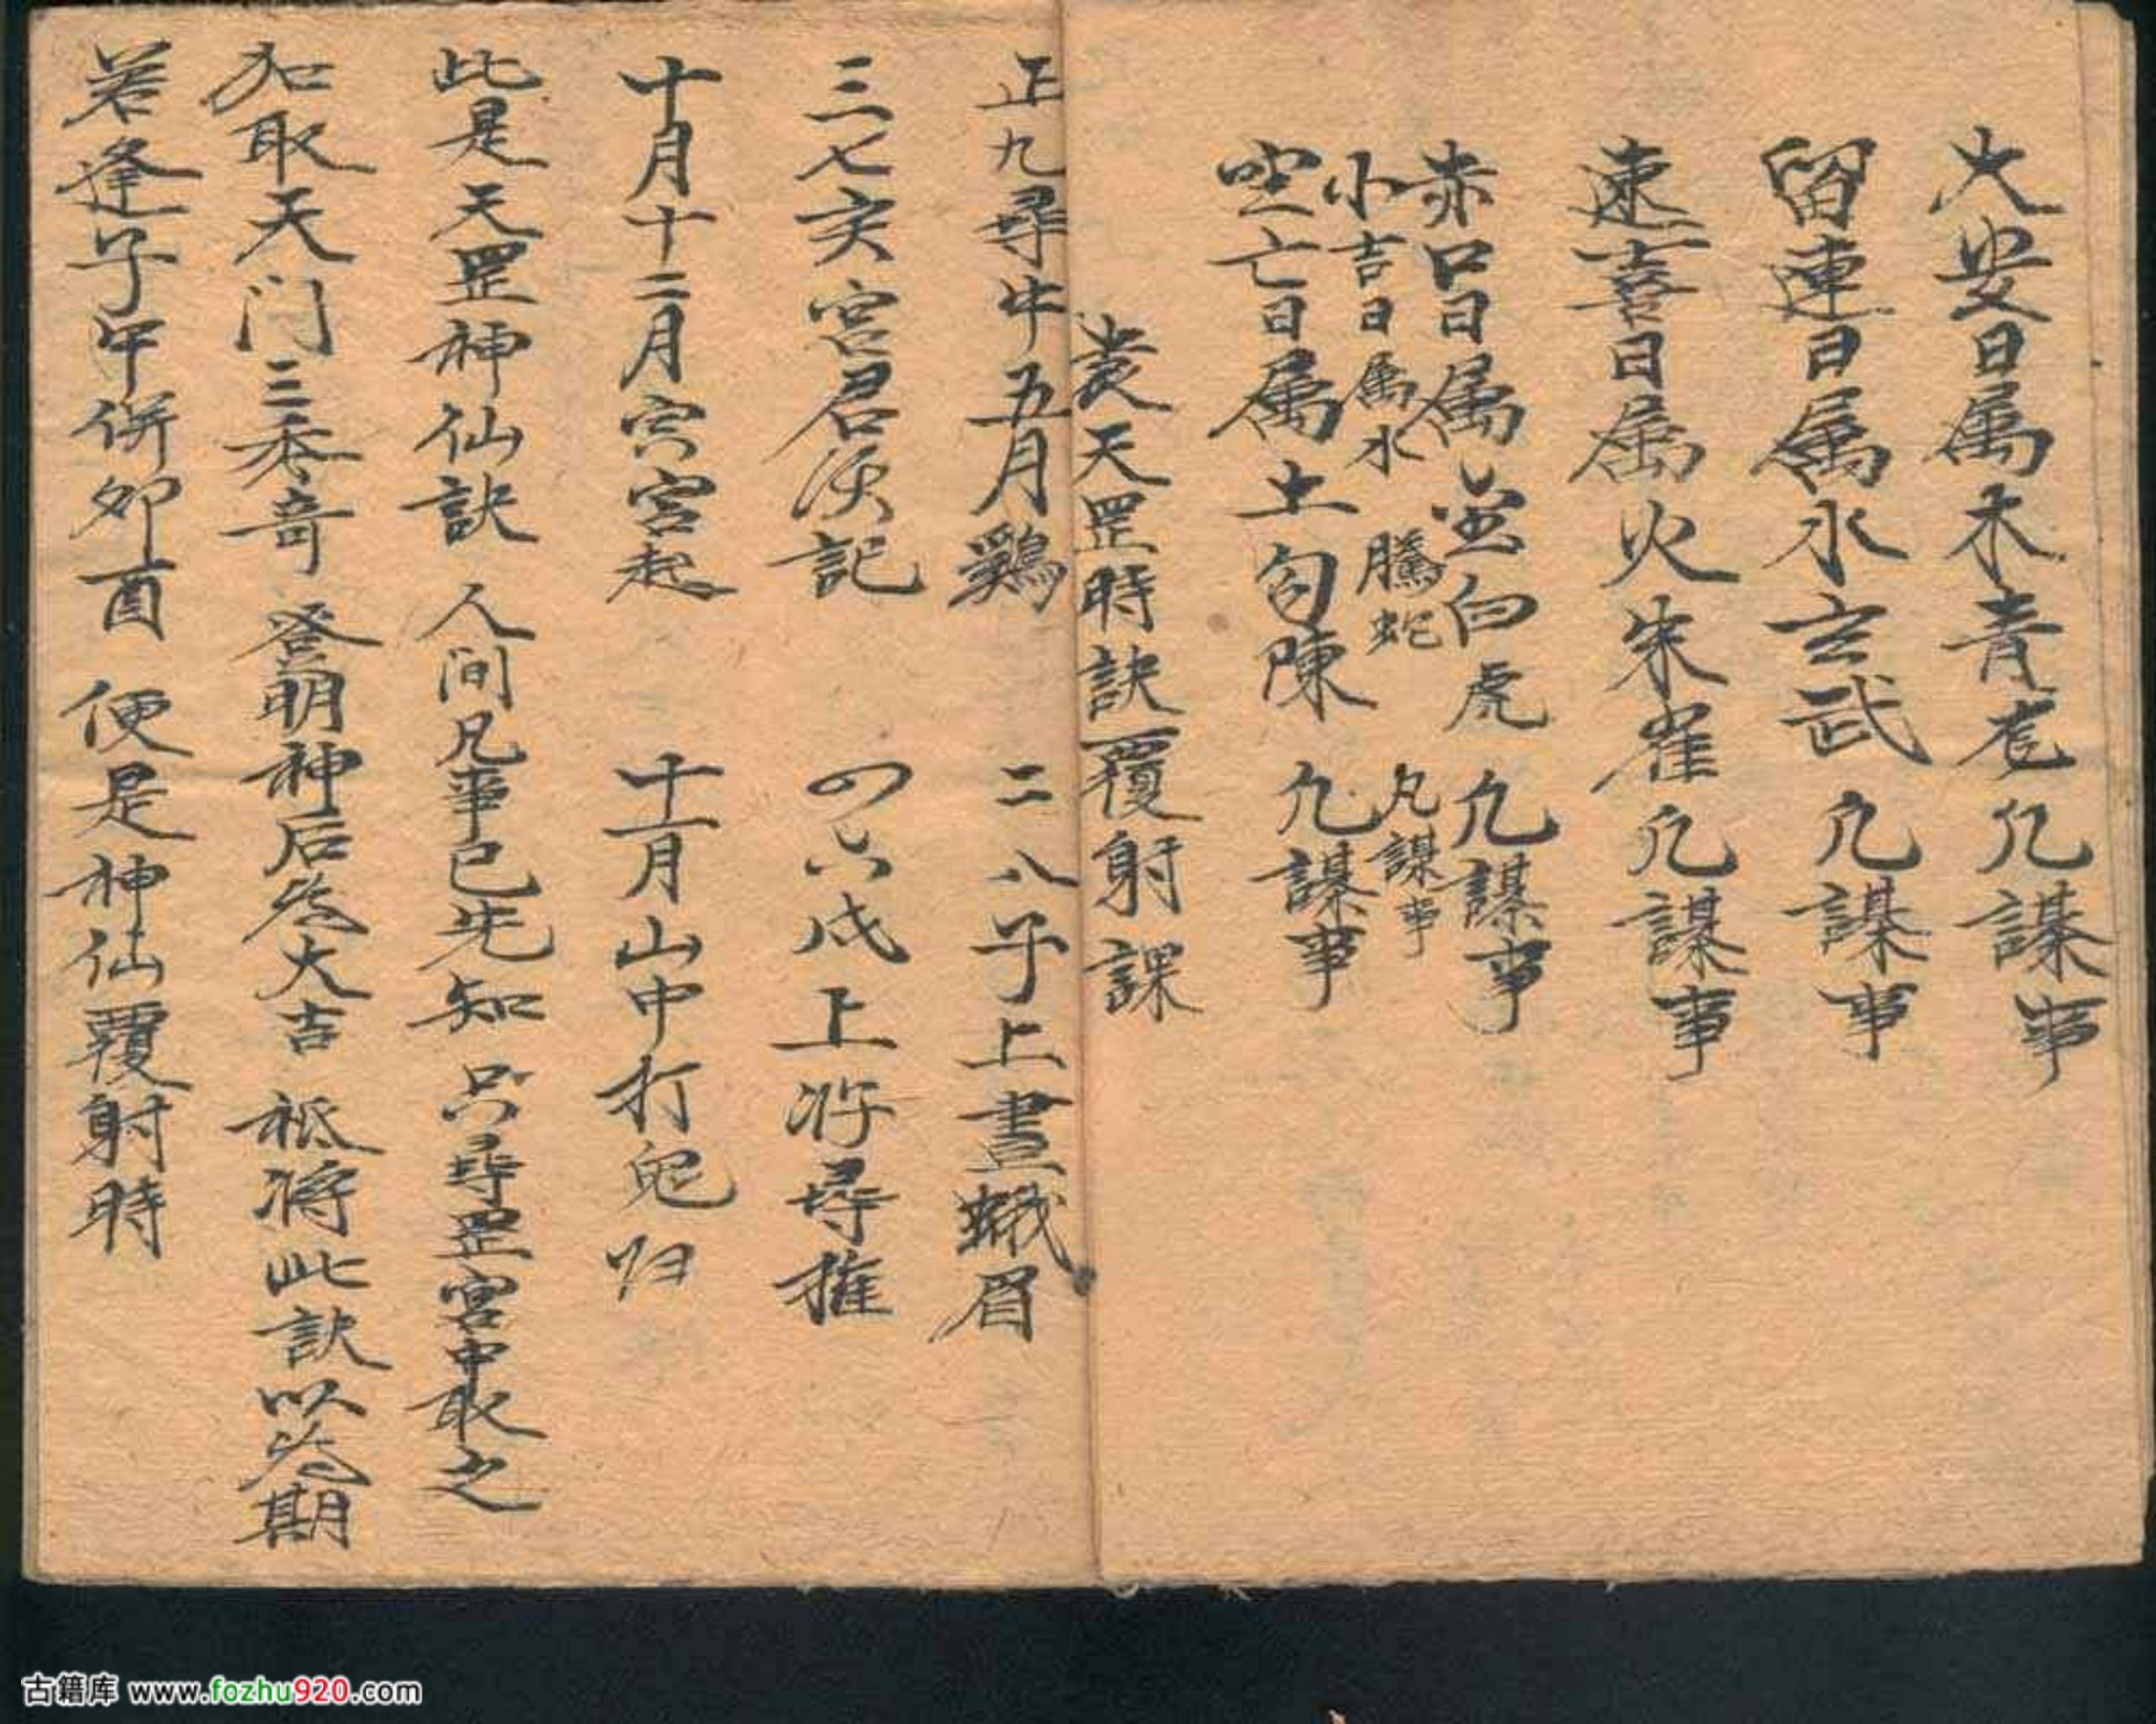 大安日属木青龙凡謀事
留連日属水玄武凡謀事
速喜日属火朱雀凡謀事
赤口日属金白虎凡謀事
小吉日属水騰蛇凡謀事
空亡日属土勾陳凡謀事
天罡時訣覆射課
正九尋牛五月鷄 二八子上畫蛾眉
三七亥宮君須記 四六戌上將尋推
十月十二月寅宮起 十一月山中打兔归
此是天罡神仙訣 人间凡事已先知 只尋罡宮中取之
加取天门三奇 登明神后為大吉 祗将此訣以為期
若逢子午併卯酉 便是神仙覆射時
古籍库 www.fozhu920.com